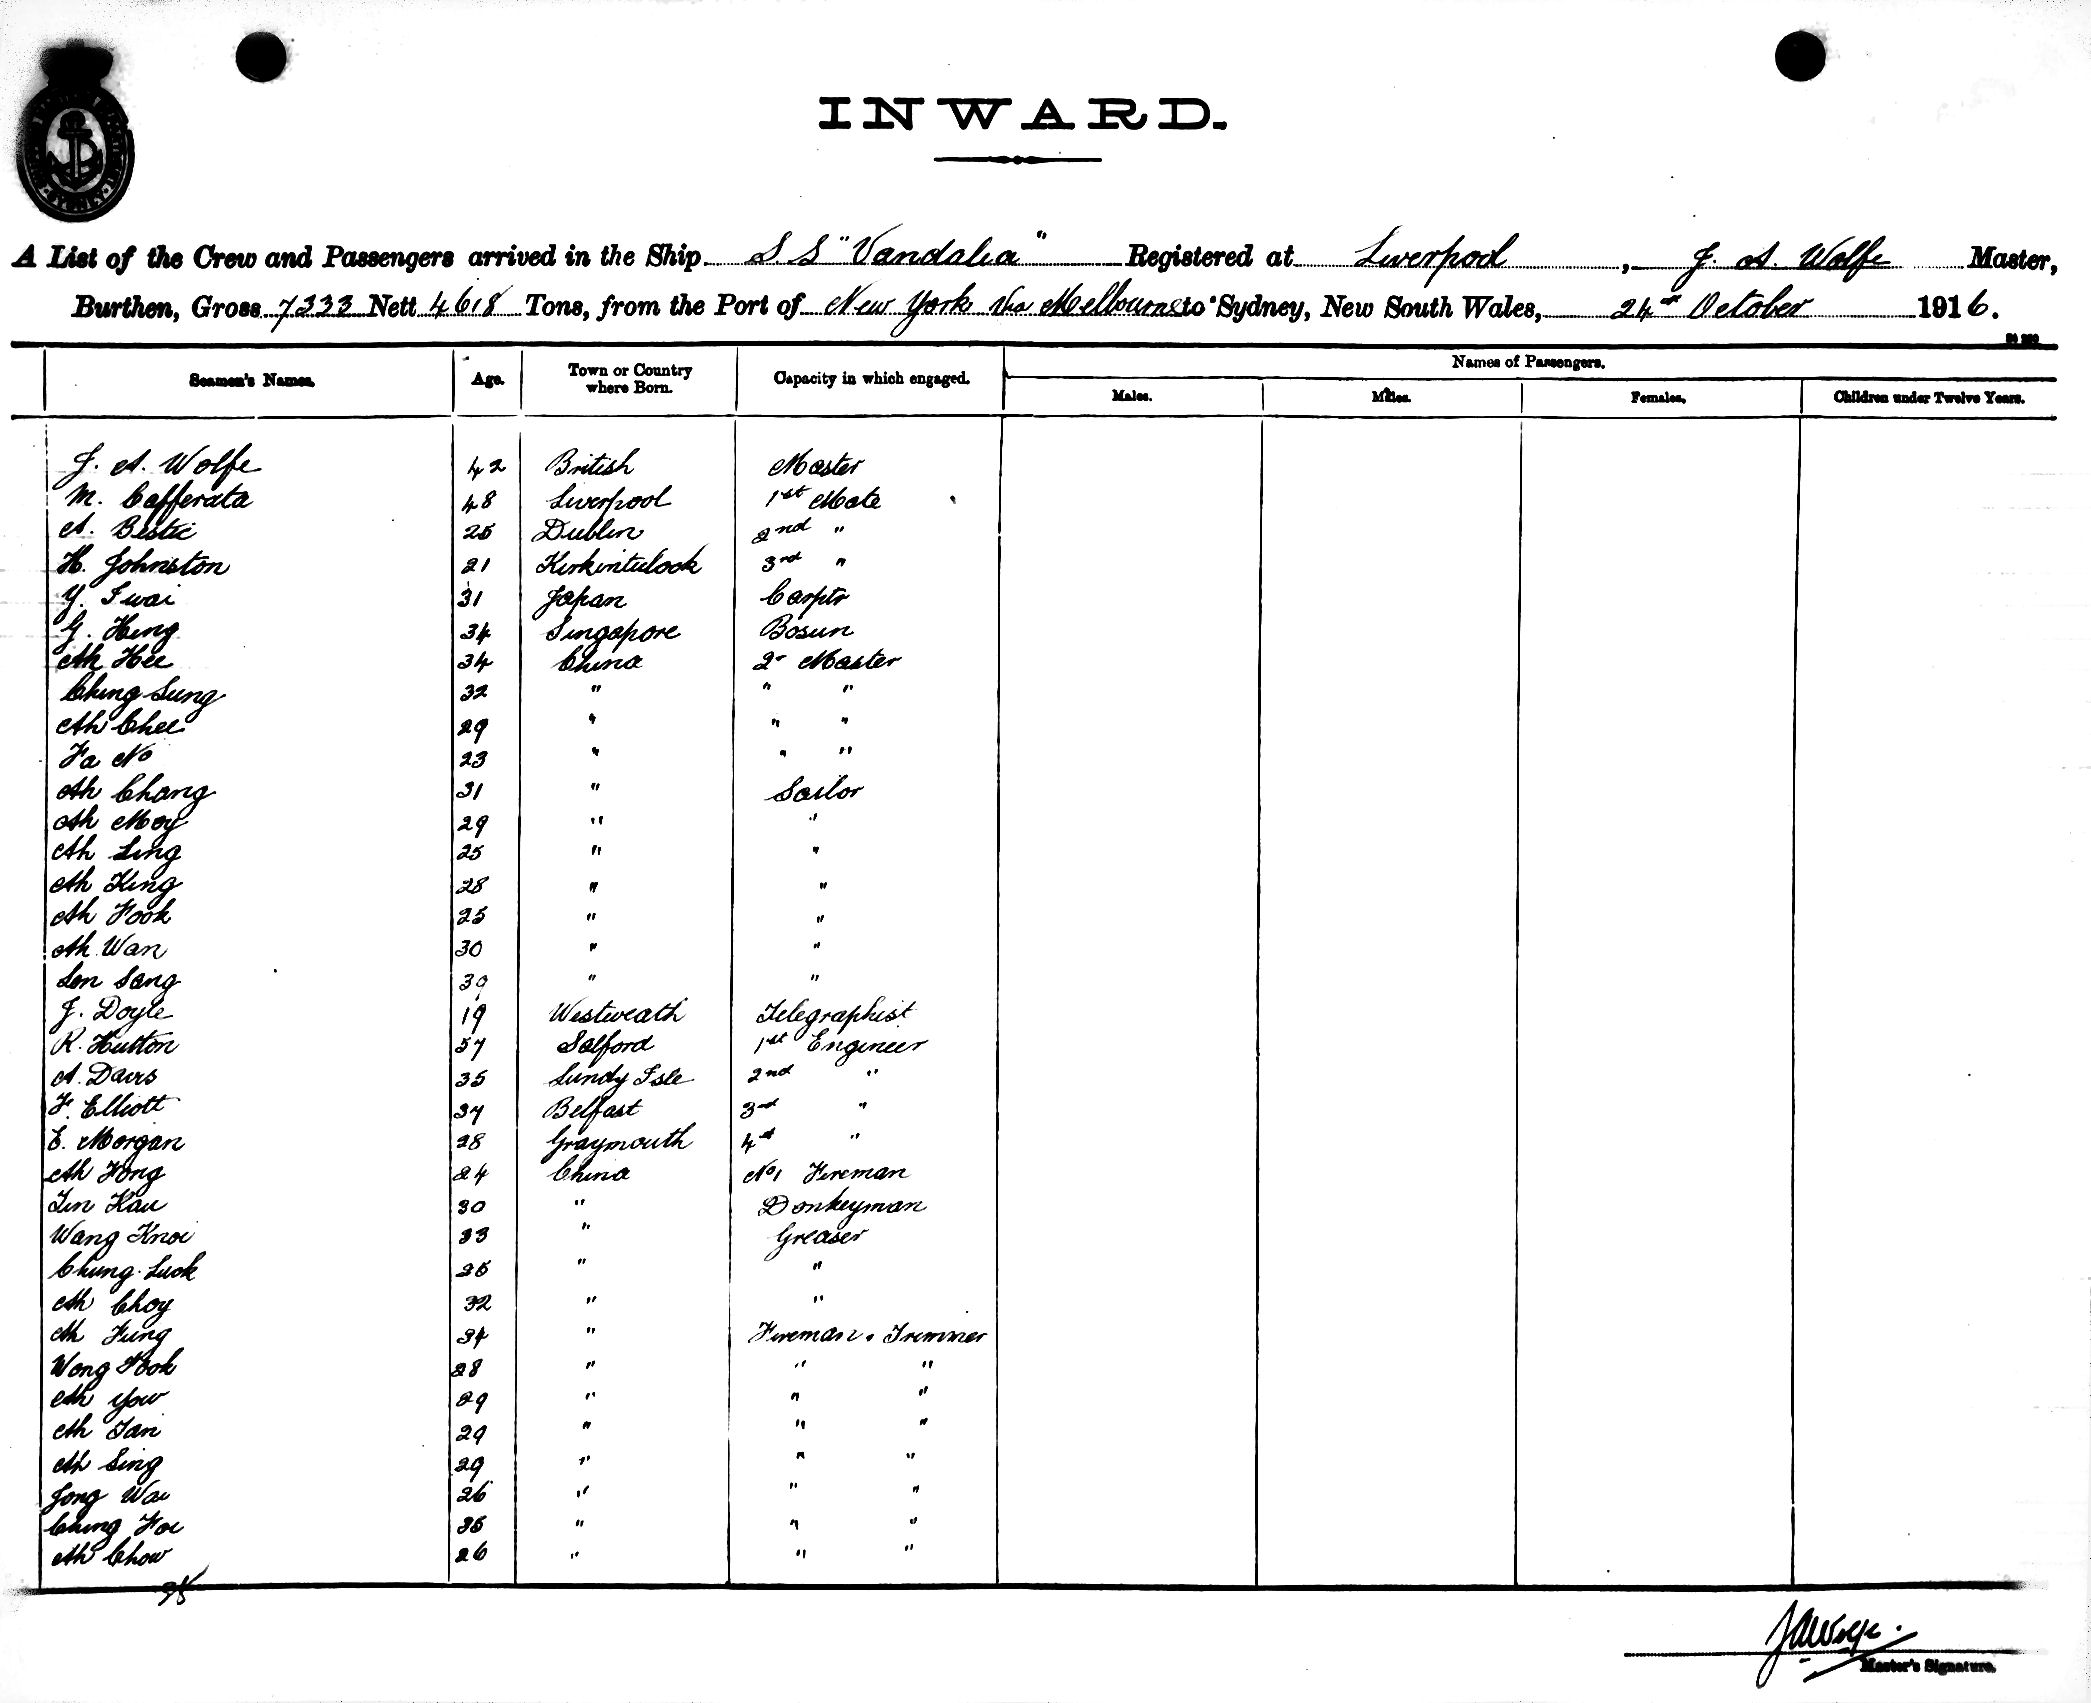 INWARD.
A List of the Crew and Passengers arrived in the Ship S.S "Vandalia" Registered at Liverpool, J. A. Wolfe Master,
Burthen, Gross 7333 Nett 4618 Tons, from the Port of New York via Melbourne to Sydney, New South Wales, 24th October 1916.
Names of Passengers.
Seamen's Names. Age. Town or Country where Born. Capacity in which engaged. Males. Males. Females. Children under Twelve Years.
J. A. Wolfe 42 British Master
M. Cafferata 48 Liverpool 1st Mate
A. Bestic 25 Dublin 2nd "
H. Johnston 21 Kirkintulook 3rd "
Y. Iwai 31 Japan Carptr
G. Hing 34 Singapore Bosun
Ah Hee 34 China 2r Master
Ching Sung 32 " " "
Ah Chee 29 " " "
Fa No 23 " " "
Ah Chang 31 " Sailor
Ah Moy 29 " "
Ah Ling 25 " "
Ah King 28 " "
Ah Fook 25 " "
Ah Wan 30 " "
Lon Sang 39 " "
J. Doyle 19 Westweath Telegraphist
R. Hutton 57 Salford 1st Engineer
A. Davis 35 Lundy Isle 2nd "
F. Elliott 37 Belfast 3rd "
E. Morgan 28 Graymouth 4th "
Ah Fong 24 China No 1 Fireman
Tin Kau 30 " Donkeyman
Wang Knoi 33 " Greaser
Chung Luck 25 " "
Ah Choy 32 " "
Ah Fung 34 " Fireman & Trimmer
Wong Fook 28 " " "
Ah You 29 " " "
Ah Tan 29 " " "
Ah Sing 29 " " "
Jong Wai 26 " " "
Ching Foi 35 " " "
Ah Chow 26 " " "
35
J A Wolfe.
Master's Signature.